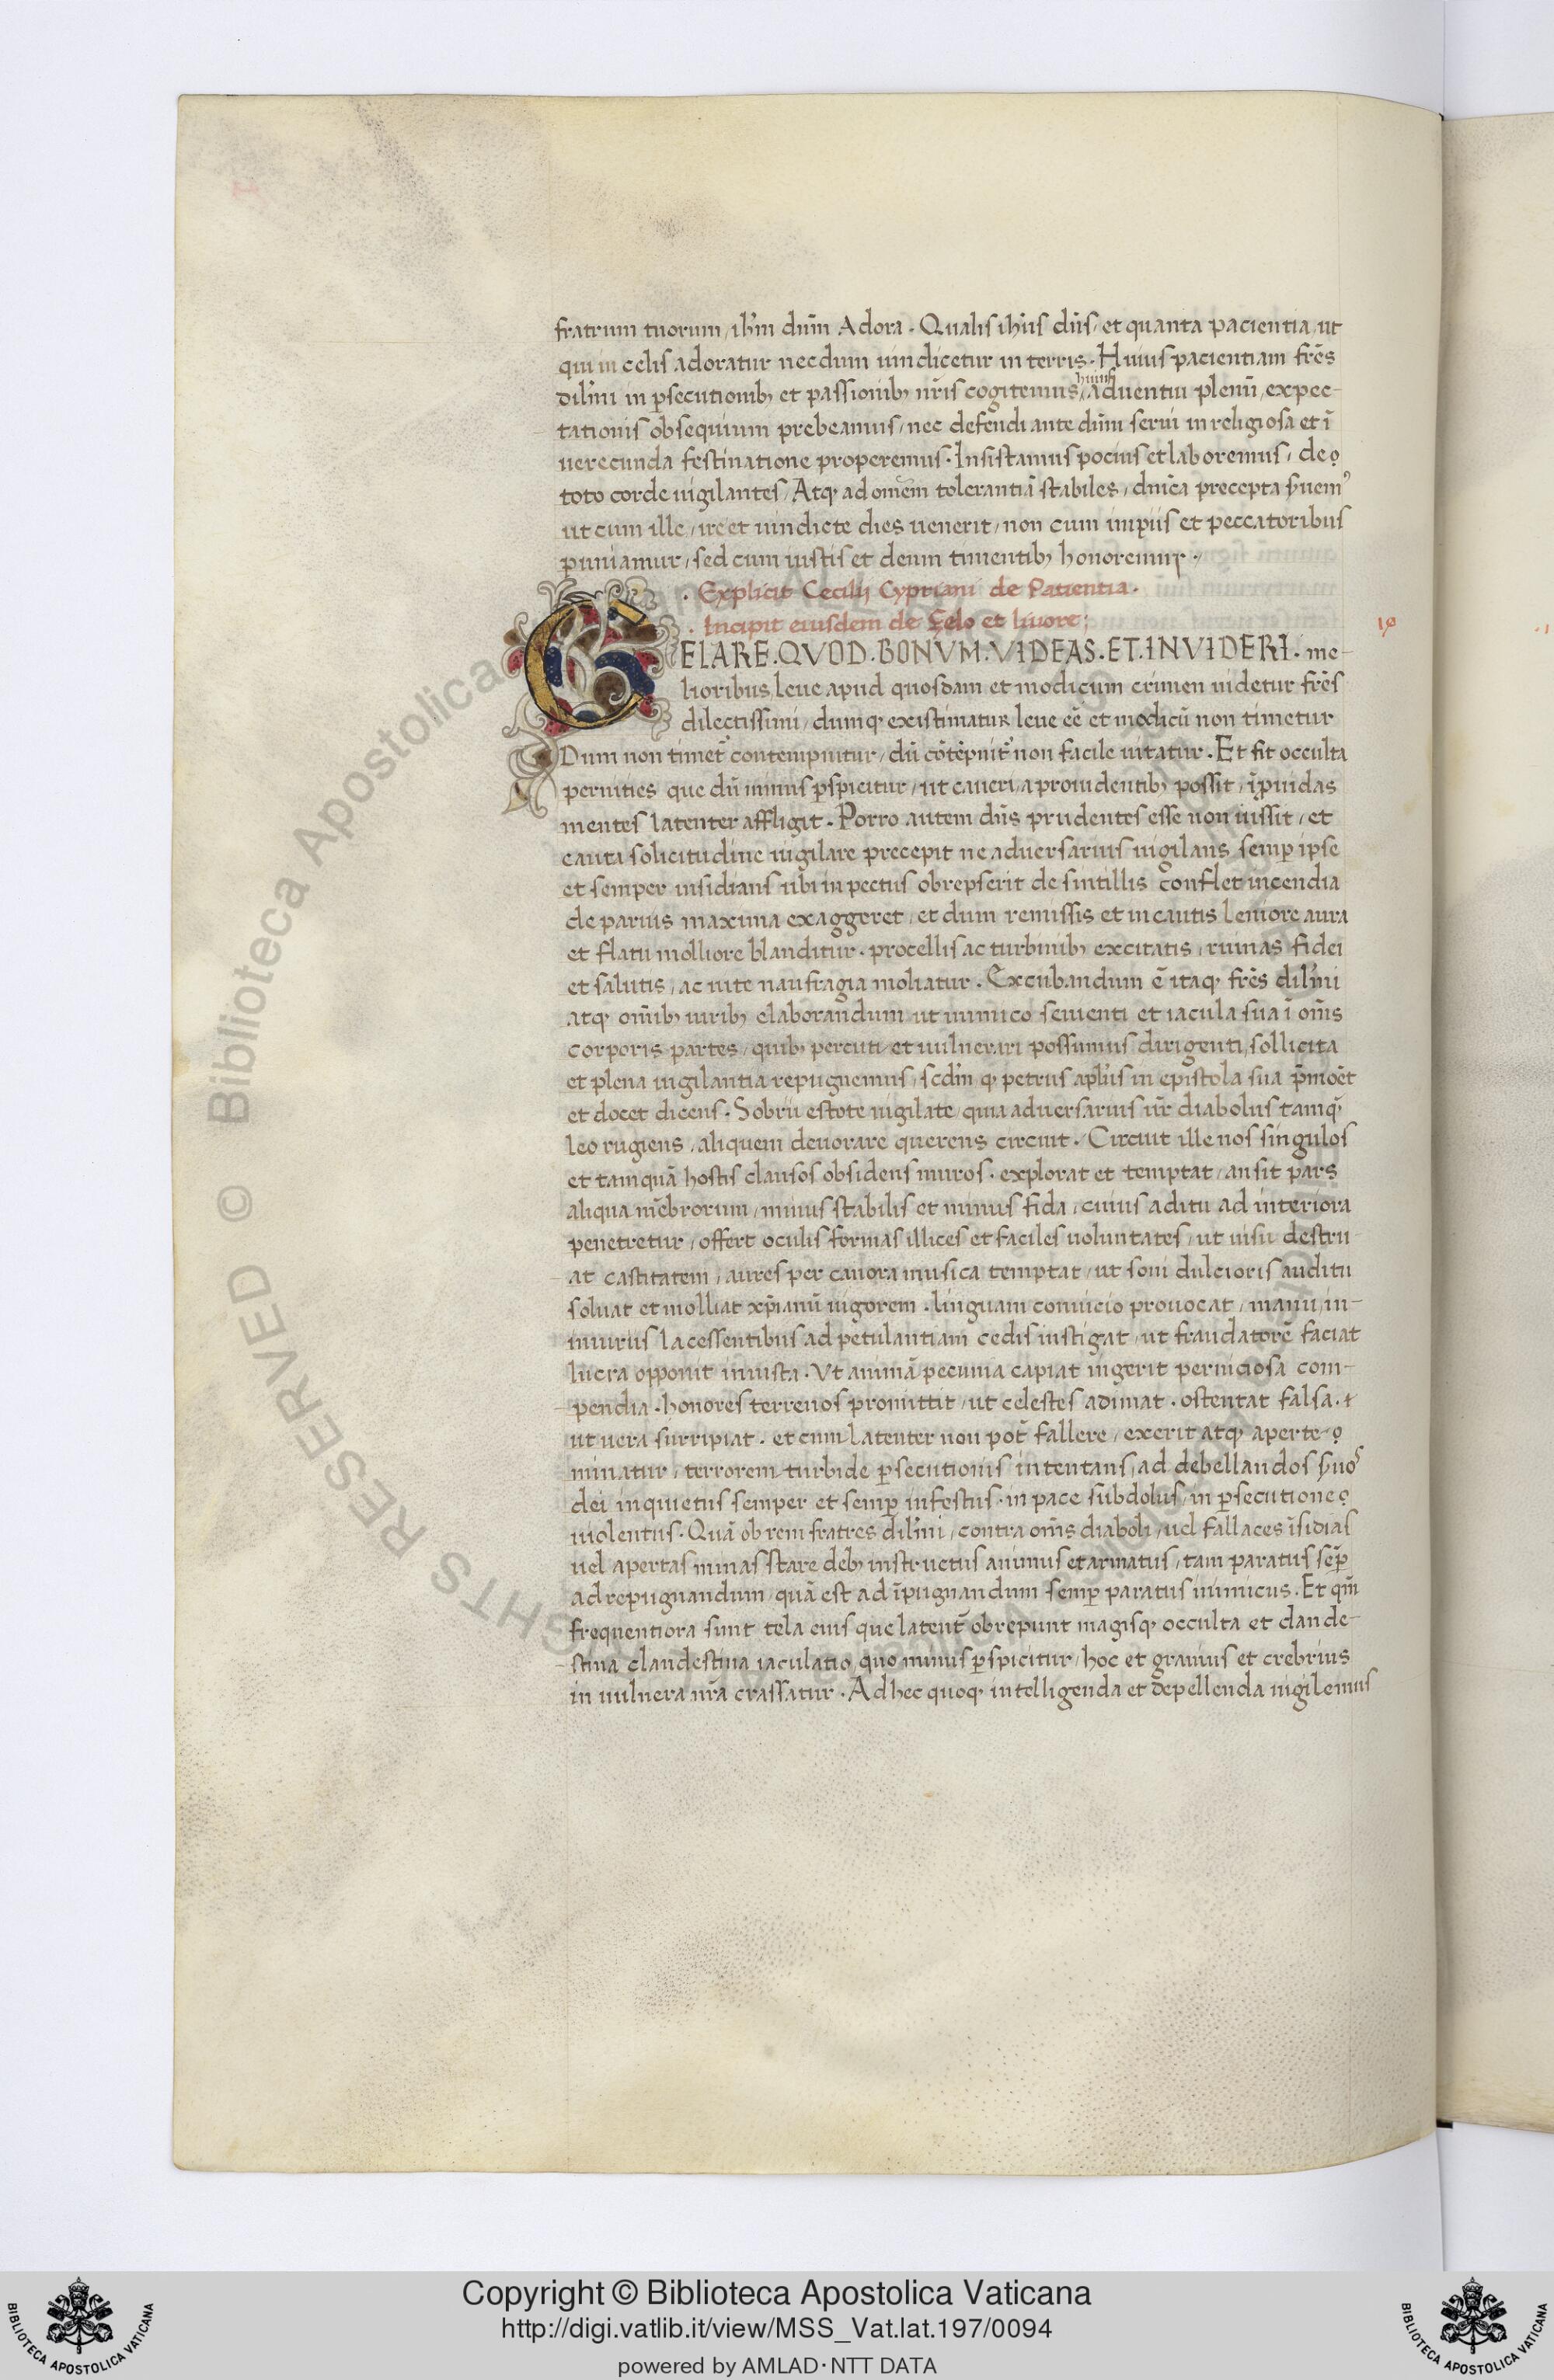 fratrum tuorum, ih̅m dn̅m Adora. Qualis ih̅us dn̅s, et quanta pacientia, ut
qui in celis adoratur necdum uindicetur in terris. Huius pacientiam fr̅es
dil̅mi in p̲secutionib; et passionib; nr̅is cogitemus, huius aduentui plenu̅, expec-
tationis obsequium prebeamus, nec defendi ante dn̅m serui inreligiosa et i̅
uerecunda festinatione properemus. Insistamus pocius et laboremus, de
toto corde uigilantes, Atq; ad omne̅m tolerantia̅ stabiles, dn̅ica precepta s̅uem᾿
ut cum ille, ire et uindicte dies uenerit, non cum impiis et peccatoribus
puniamur, sed cum iustis et deum timentib; honoremur.
. Explicit Cecilij Cypriani de Patientia.
. Incipit eiusdem de Zelo et liuore;
19
ELARE. QVOD. BONVM. VIDEAS. ET. INVIDERI. me-
lioribus, leue apud quosdam et modicum crimen uidetur fr̅es
dilectissimi, dumq; existimatur leue ee̅ et modicu̅ non timetur
Dum non timet᾿ contempnitur, du̅ co̅te̅pnit᾿ non facile uitatur. Et fit occulta
pernities que du̅ minus p̲spicitur, ut caueri, a prouidentib; possit, i̅p̲uidas
mentes latenter affligit. Porro autem dn̅s prudentes esse non iussit, et
cauta solicitudine uigilare precepit ne aduersarius uigilans semp̲ ipse
et semper insidians ubi in pectus obrepserit de sintillis conflet incendia
de paruis maxima exaggeret, et dum remissis et incautis leniore aura
et flatu molliore blanditur. procellis ac turbinib; excitatis, ruinas fidei
et salutis, ac uite naufragia moliatur. Excubandum e̅ itaq; fr̅es dil̅mi
atq; om̅ib; uirib; elaborandum ut inimico seuienti et iacula sua i̅ om̅s
corporis partes, quib; percuti, et uulnerari possumus dirigenti, sollicita
et plena uigilantia repugnemus, scd̅m q; petrus apl̅us in epistola sua p̅moet̅
et docet dicens. Sobrii estote uigilate, quia aduersarius ur̅ diabolus tamq̅
leo rugiens, aliquem deuorare querens circuit. Circuit ille nos singulos
et tamqua̅ hostis clausos obsidens muros. explorat et temptat, an sit pars
aliqua me̅brorum, minus stabilis et minus fida, cuius aditu ad interiora
penetretur, offert oculis formas illices et faciles uoluntates, ut uisu destru-
at castitatem, aures per canora musica temptat, ut soni dulcioris auditu
soluat et molliat xp̅ianu̅ uigorem. linguam conuicio prouocat, manu, in-
iniuriis lacessentibus ad petulantiam cedis instigat, ut fraudatore̅ faciat
lucra opponit iniusta. Vt anima̅ pecunia capiat ingerit perniciosa com-
pendia. honores terrenos promittit, ut celestes adimat. ostentat falsa. &
ut uera surripiat. et cum latenter non pot̅ fallere, exerit atq; aperte
minatur, terrorem turbide p̲secutionis intentans, ad debellandos s̅uos
dei inquietus semper et semp̲ infestus. in pace subdolus, in p̲secutione
uiolentus. Qua̅ ob rem fratres dil̅mi, contra om̅s diaboli, uel fallaces i̅sidias
uel apertas minas stare deb; instructus animus et armatus, tam paratus se̅p̲
ad repugnandum, qua̅ est ad i̅pugnandum semp̲ paratus inimicus. Et qm̅
frequentiora sunt tela eius que latent᾿ obrepunt magisq; occulta et clande-
stina clandestina iaculatio, quo minus p̲spicitur, hoc et grauius et crebrius
in uulnera nr̅a crassatur. Ad hec quoq; intelligenda et depellenda uigilemus
© Biblioteca Apostolica
RESERVED
Copyright © Biblioteca Apostolica Vaticana
http://digi.vatlib.it/view/MSS_Vat.lat.197/0094
powered by AMLAD·NTT DATA
BIBLIOTECA APOSTOLICA VATICANA
BIBLIOTECA APOSTOLICA VATICANA